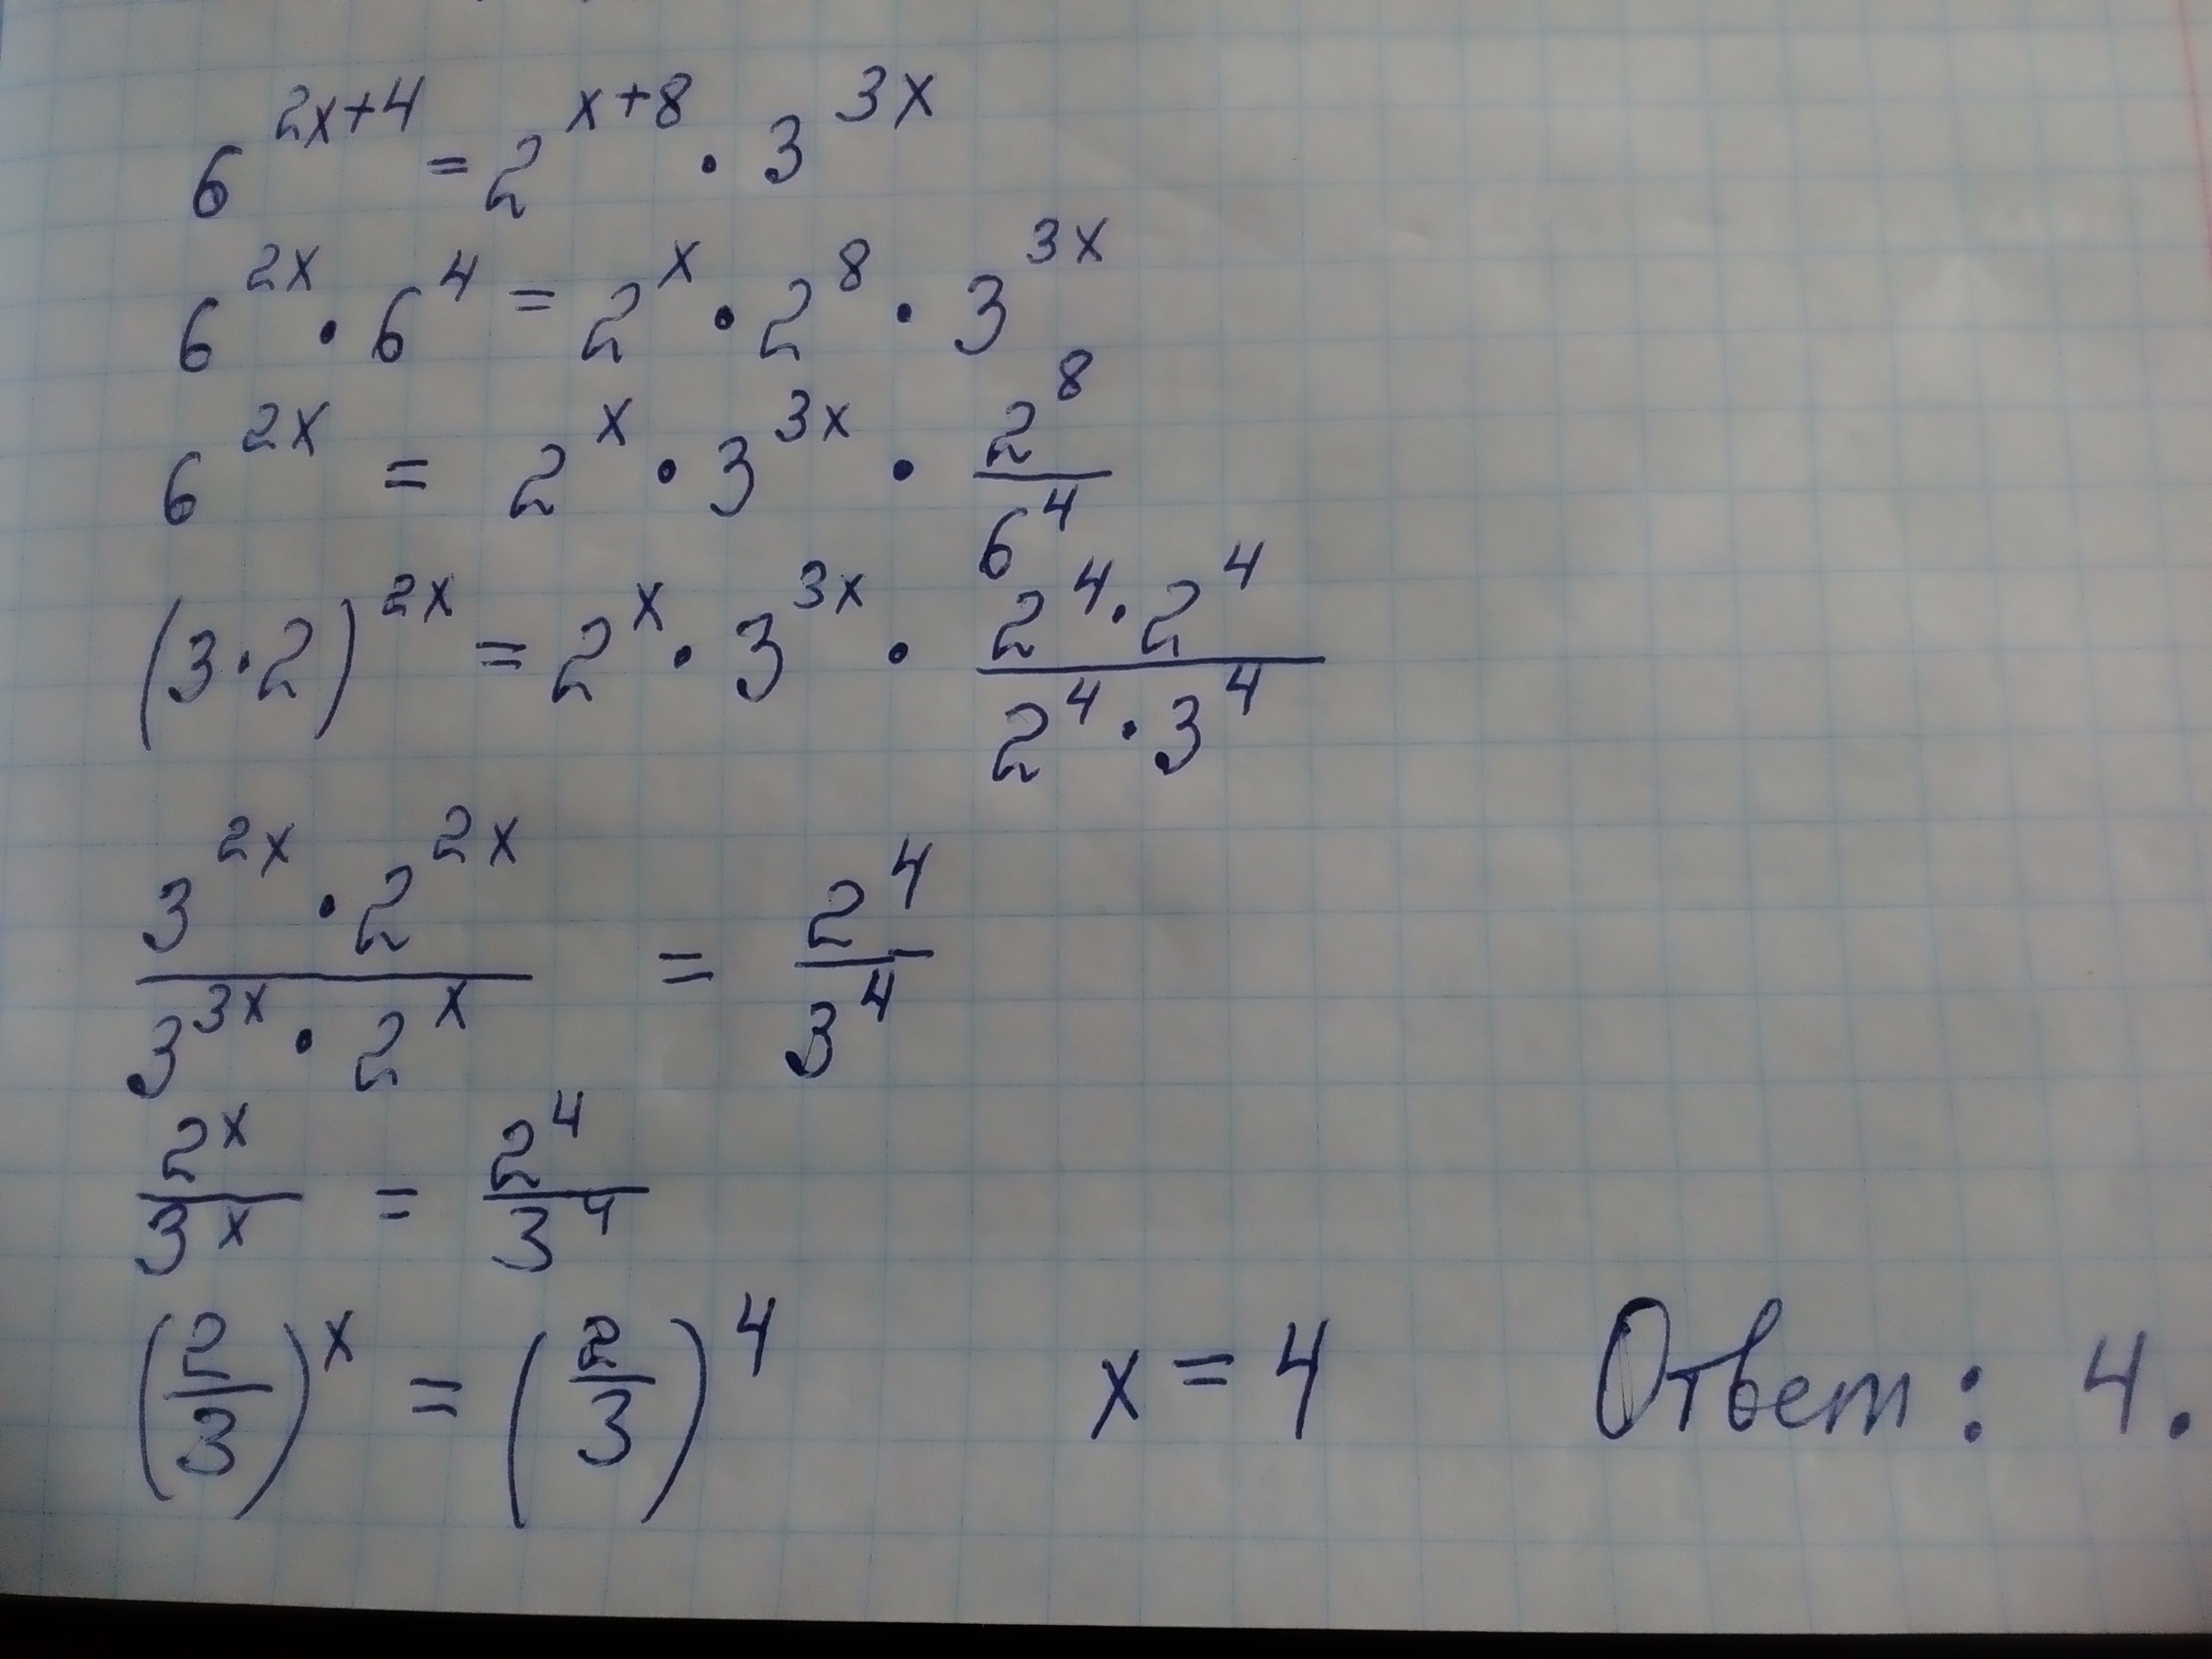 6^{2x+4} = 2^{x+8} · 3^{3x}
6^{2x} · 6^4 = 2^x · 2^8 · 3^{3x}
6^{2x} = 2^x · 3^{3x} · \frac{2^8}{6^4}
(3·2)^{2x} = 2^x · 3^{3x} · \frac{2^4 · 2^4}{2^4 · 3^4}
\frac{3^{2x} · 2^{2x}}{3^{3x} · 2^x} = \frac{2^4}{3^4}
\frac{2^x}{3^x} = \frac{2^4}{3^4}
(\frac{2}{3})^x = (\frac{2}{3})^4 x = 4 Ответ: 4.